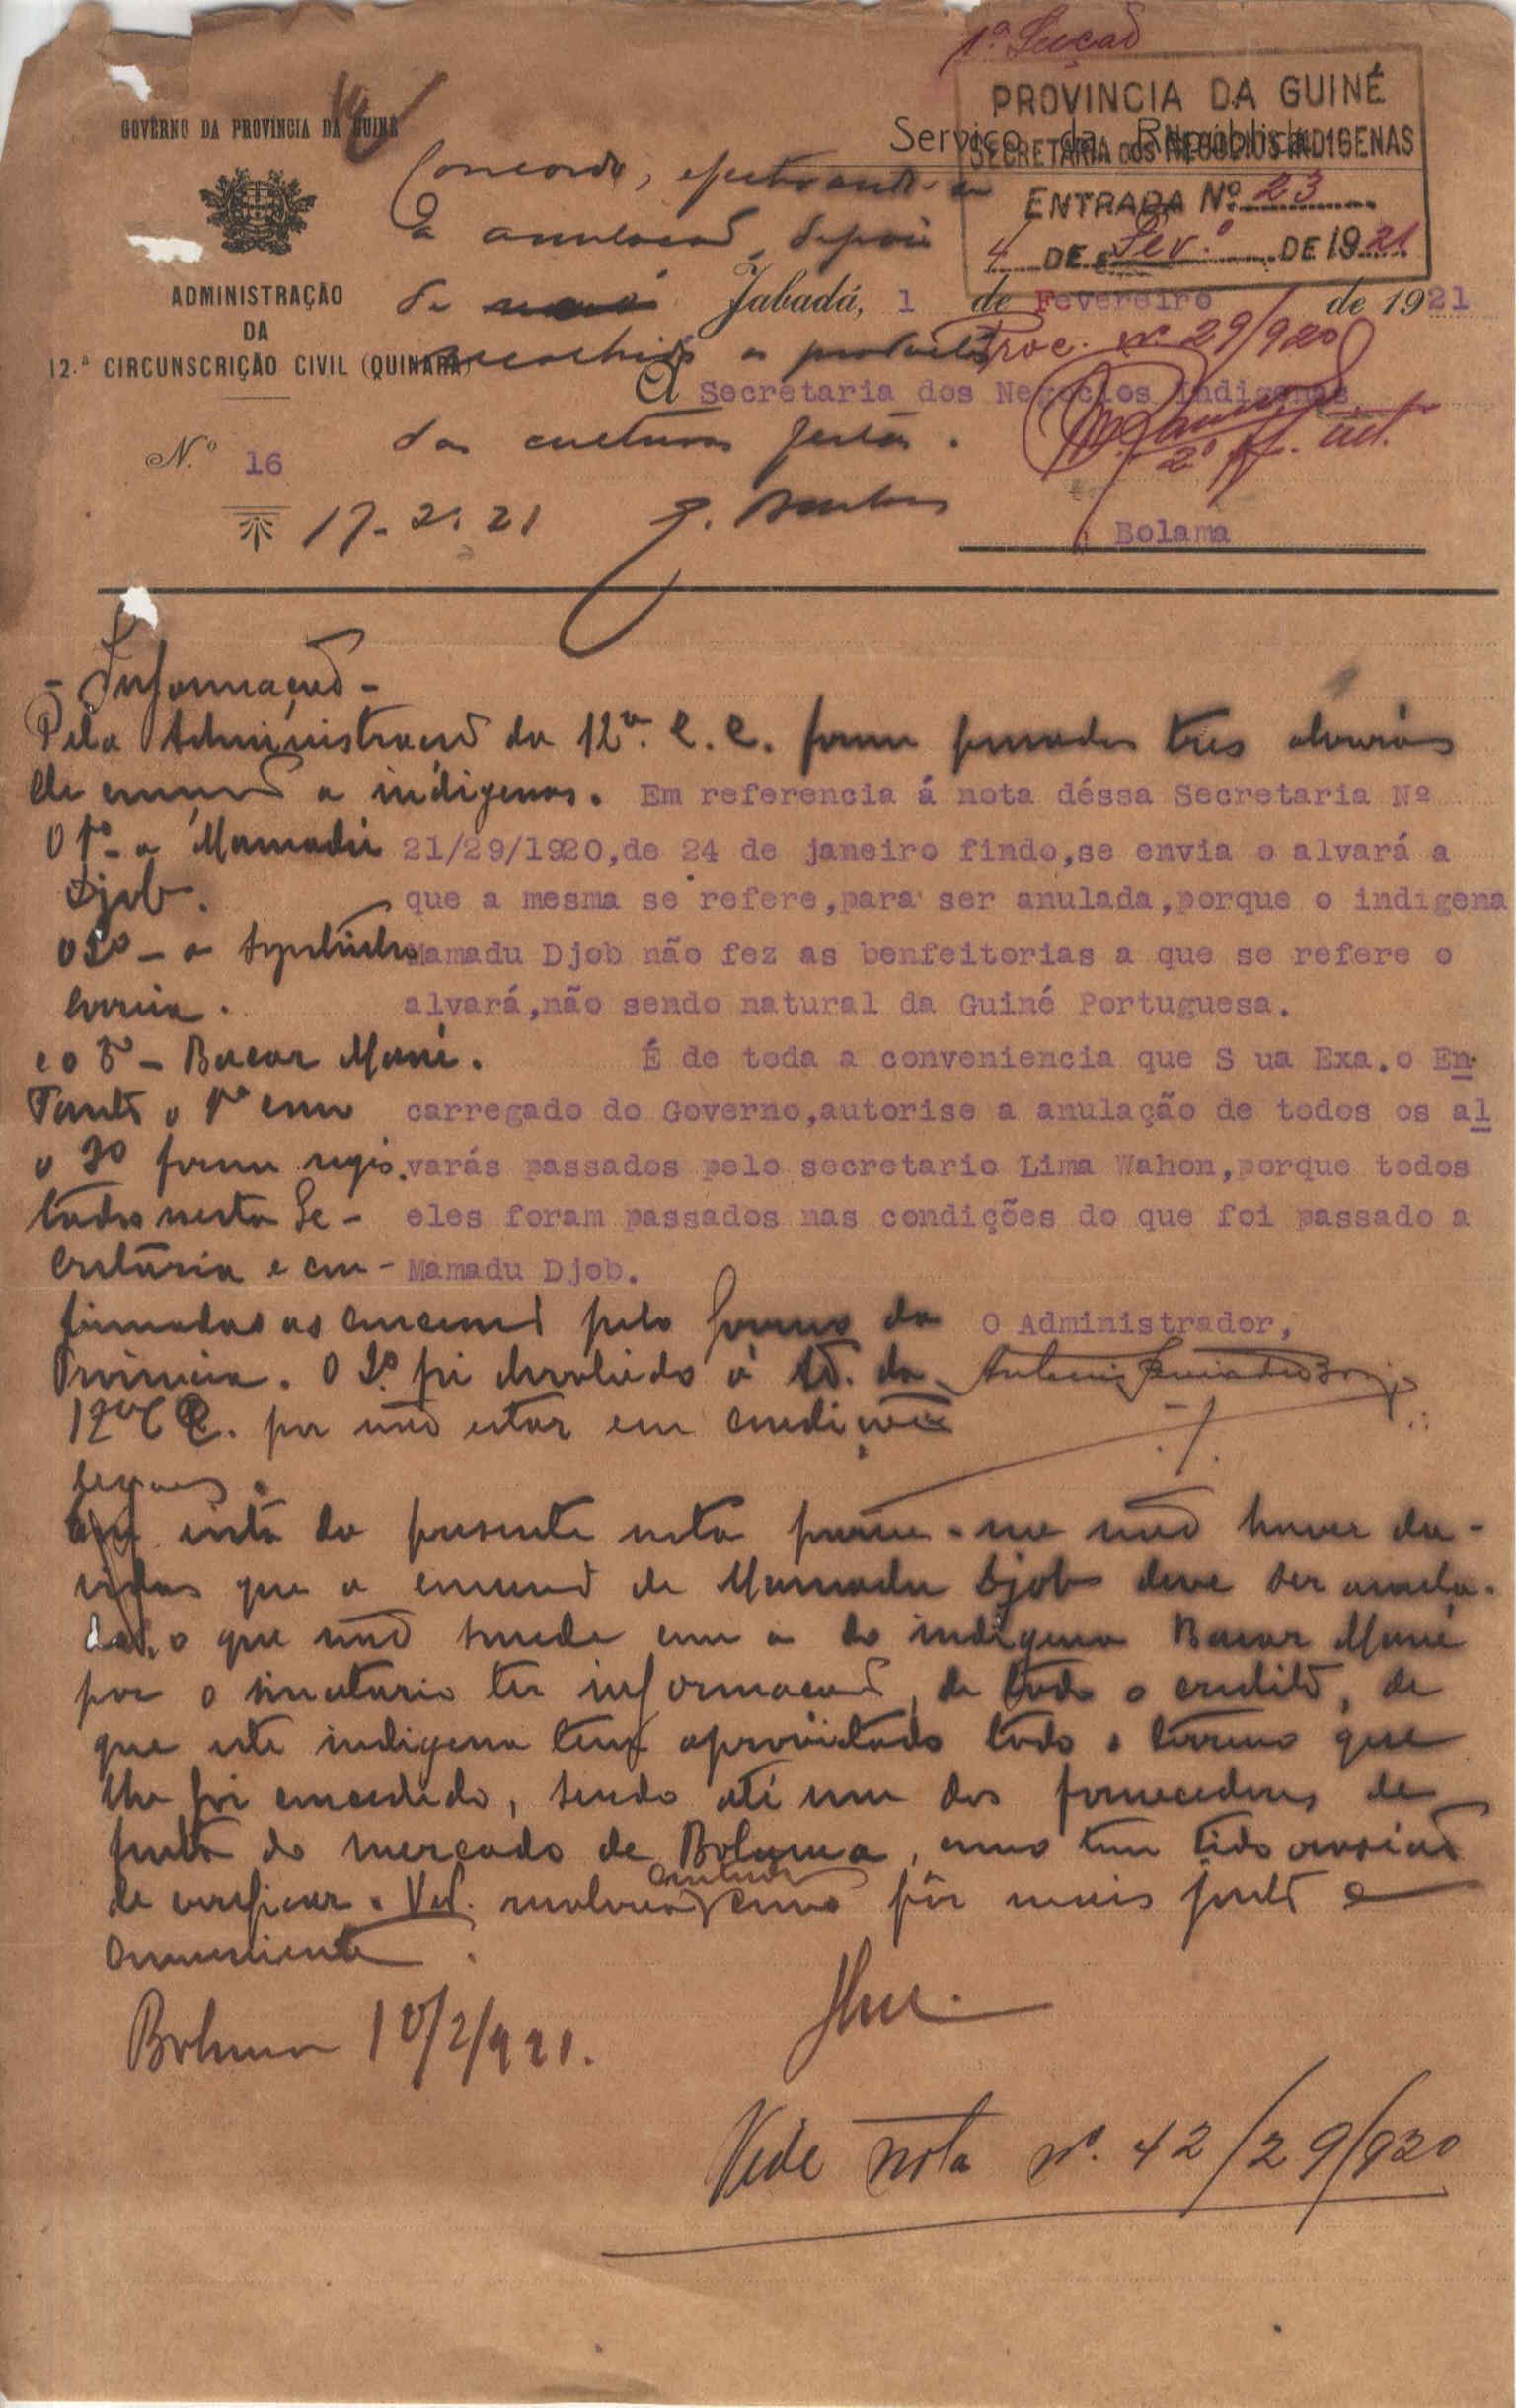 1ª Secção
GOVÊRNO DA PROVÍNCIA DA GUINÉ
ADMINISTRAÇÃO
DA
12.ª CIRCUNSCRIÇÃO CIVIL (QUINARA)
N.º 16
Serviço da República
PROVINCIA DA GUINÉ
SECRETARIA DOS NEGOCIOS INDIGENAS
ENTRADA Nº 23
4 DE Fev.º DE 1921
Concordo, efectuando-se
a anulação, depois
de
recolhidos os productos
das culturas feitas.
17-2-21
Jabadá, 1 de Fevereiro de 1921
Proc. nº 29/920
Á Secretaria dos Negocios Indigenas
2º of. int.
Bolama
- Informação -
Pela Administração da 12ª. C. C. foram passados tres alvarás
de concessão a indígenas.
O 1º - a Mamadú
Djob.
O 2º - a Agostinho
Correia.
e o 3º - Bacar Mané.
Tanto o 1º como
o 3º foram regis-
tados nesta Se-
cretaria e con-
firmadas as concessões pelo Governo da
Provincia. O 2º foi devolvido á Ad. da
12ª C C. por não estar em condições
legaes.
Em referencia á nota déssa Secretaria Nº
21/29/1920,de 24 de janeiro findo,se envia o alvará a
que a mesma se refere,para ser anulada,porque o indigena
Mamadu Djob não fez as benfeitorias a que se refere o
alvará,não sendo natural da Guiné Portuguesa.
É de toda a conveniencia que S ua Exa.o En
carregado do Governo,autorise a anulação de todos os al
varás passados pelo secretario Lima Wahon,porque todos
eles foram passados nas condições do que foi passado a
Mamadu Djob.
O Administrador,
vista da presente nota parece-me não haver du-
vidas que a concessão de Mamadu Djob deve ser anula-
da, o que não sucede com a do indígena Bacar Mané
por o signatario ter informação, de todo o credito, de
que este indigena tem aproveitado todo o terreno que
lhe foi concedido, sendo até um dos fornecedores de
fruta do mercado de Bolama, como tem tido ocasião
de verificar. V. Exª. resolverá como fôr mais justo e
conveniente.
Bolama 10/2/921.
Vide nota nº. 42/29/920